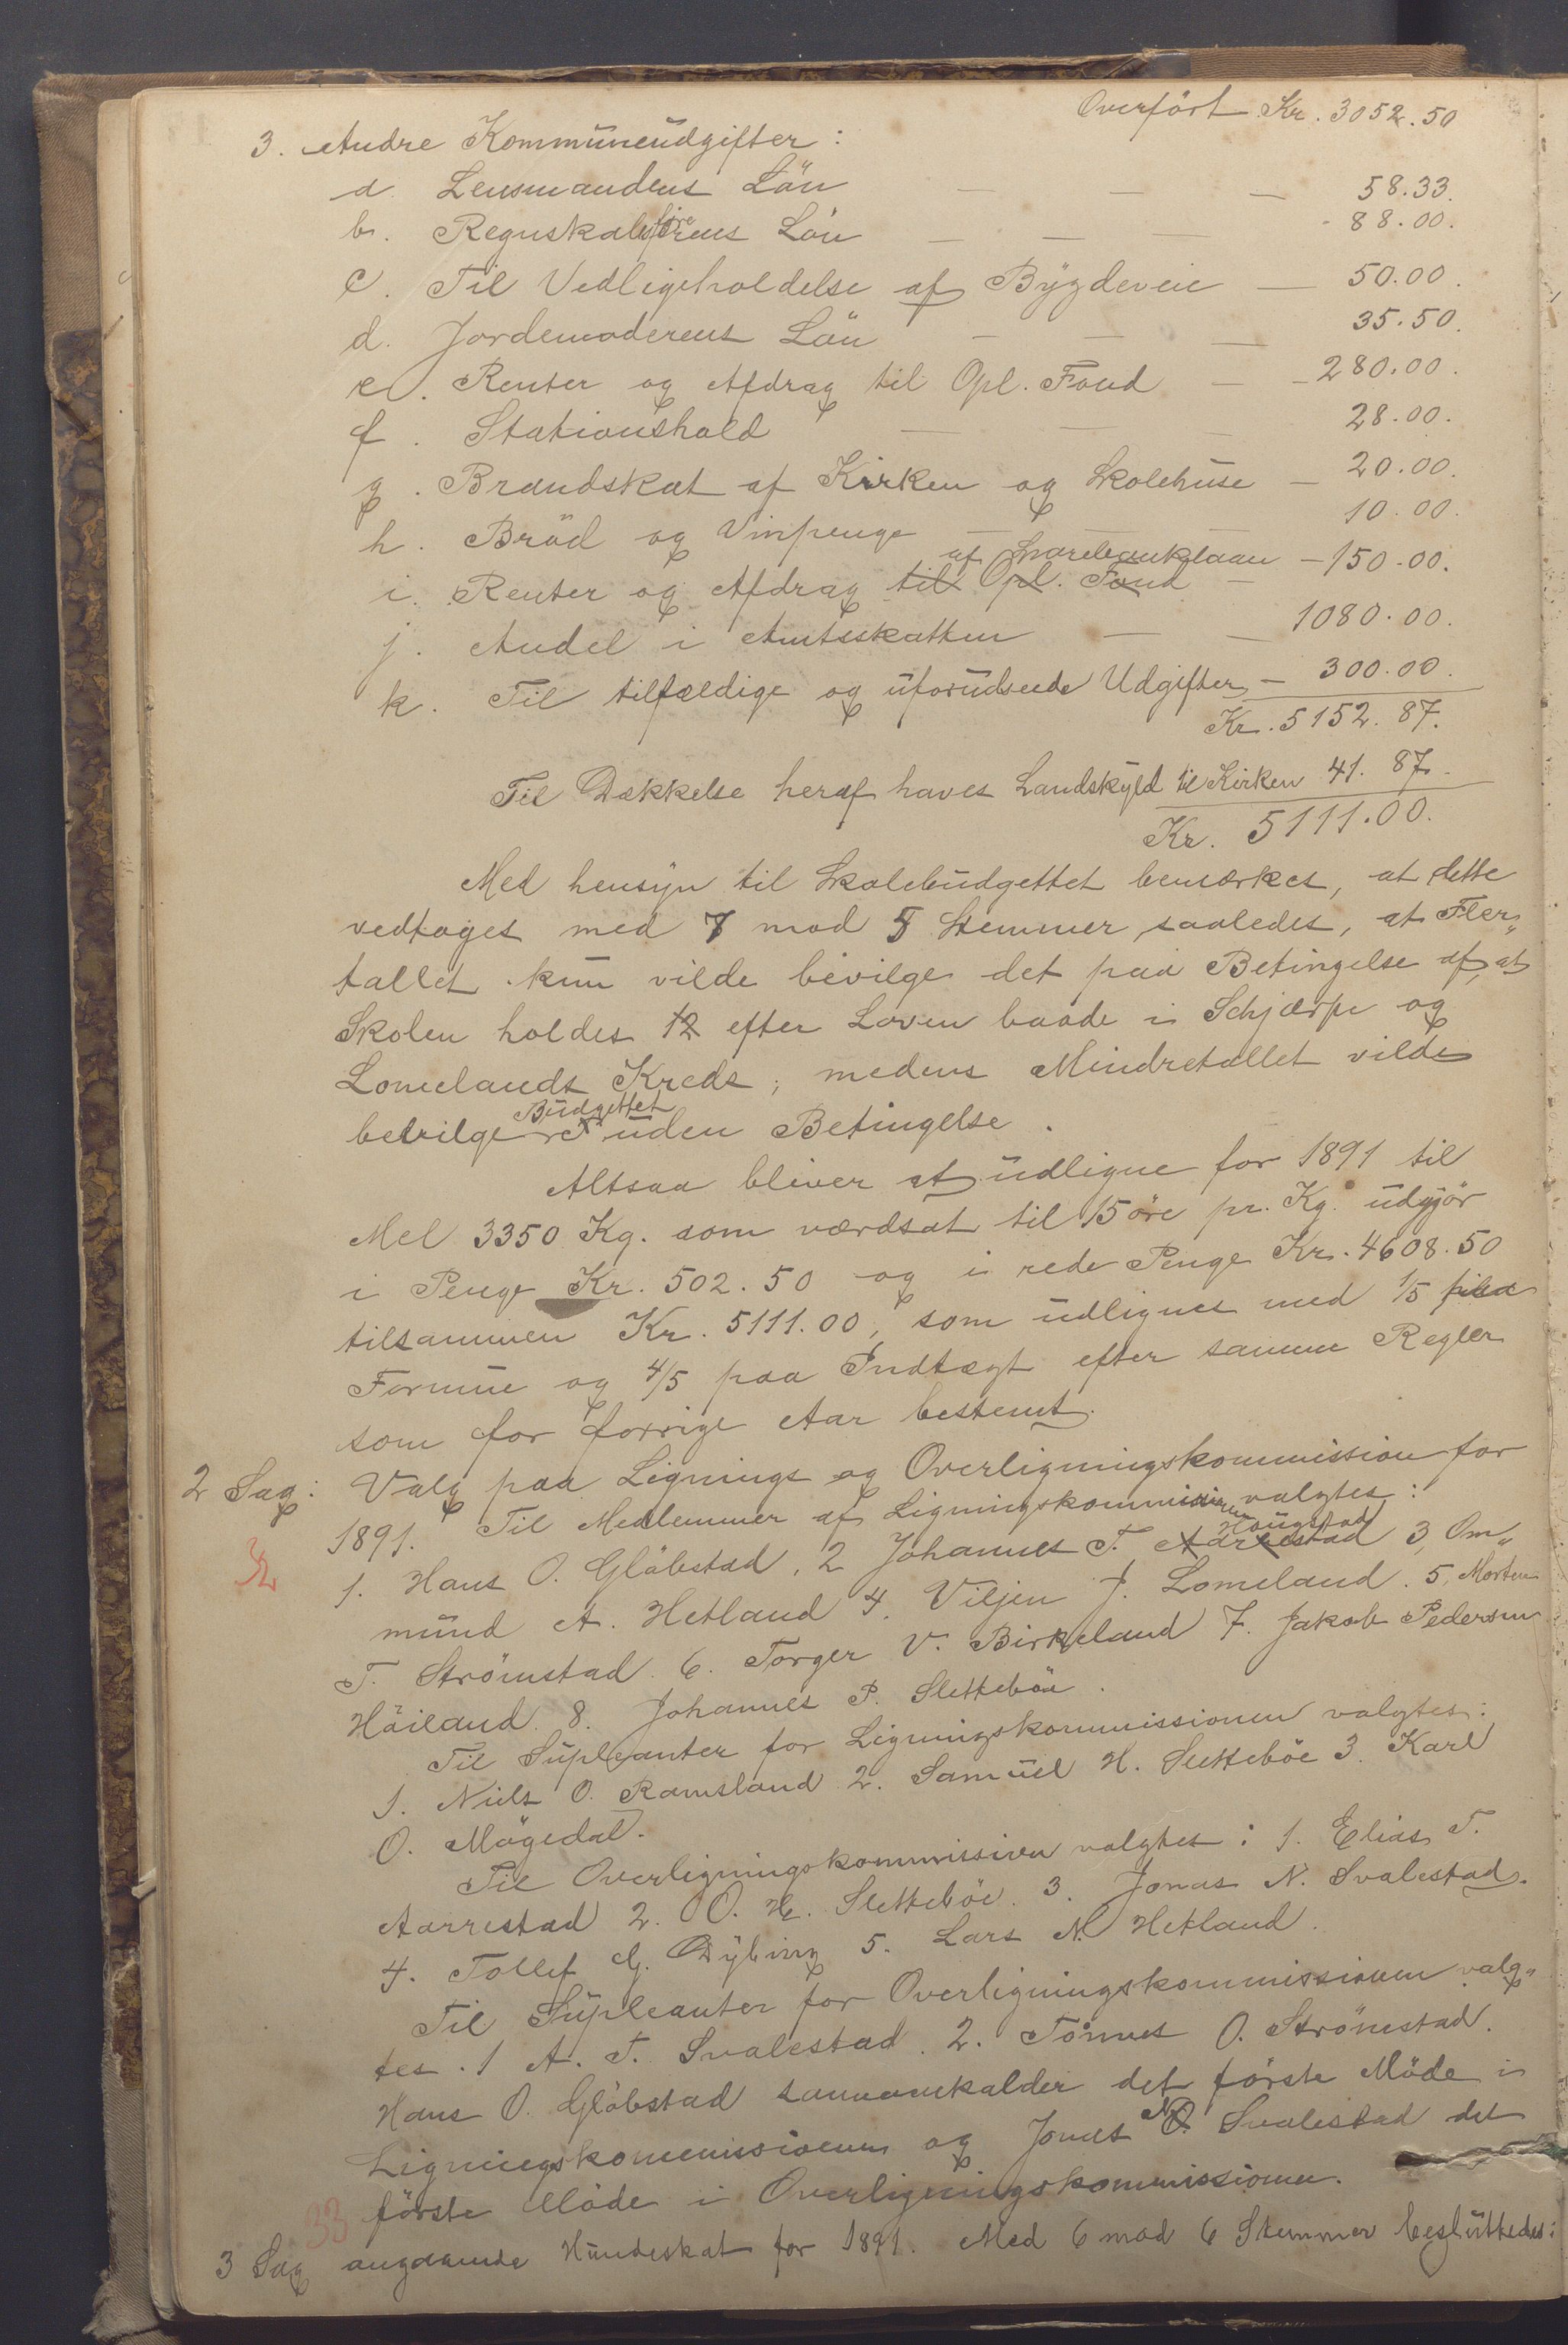 Overført Kr. 3052.50
3. Andre Kommuneudgifter:
a. Lensmandens Løn — — — 58.33.
b. Regnskabsførerens Løn — — — - 88.00.
c. Til Vedligeholdelse af Bygdeveie — 50.00.
d. Jordemoderens Løn — — — 35.50.
e. Renter og Afdrag til Opl. Fond — - 280.00.
f. Stationshold — — — 28.00.
g. Brandskat af Kirken og Skolehuse — 20.00.
h. Brød og Vinpenge — — — 10.00.
af Sparebanklaan
i. Renter og Afdrag til Opl. Fond — - 150.00.
j. Andel i Amtsskatten — — 1080.00.
k. Til tilfældige og uforudseede Udgifter — 300.00.
Kr. 5152.87.
Til Dækkelse heraf haves Landskyld til Kirken 41.87.
Kr. 5111.00.
Med hensyn til Skolebudgettet bemærkes, at dette
vedtoges med 7 mod 5 Stemmer saaledes, at Fler„
tallet kun vilde bevilge det paa Betingelse af, at
Skolen holdes 12 efter Loven baade i Schjærpe og
Lomelands Kreds, medens Mindretallet vilde
Budgettet
bevilge uden Betingelse.
Altsaa bliver at udligne for 1891 til
Mel 3350 Kg. som værdsat til 15 øre pr. Kg. udgjør
i Penge Kr. 502.50 og i rede Penge Kr. 4608.50
tilsammen Kr. 5111.00, som udlignes med 1/5 paa
Formue og 4/5 paa Indtægt efter samme Regler
som for forrige Aar bestemt.
2 Sag: Valg paa Lignings og Overligningskommission for
1891. Til Medlemmer af Ligningskommissionen valgtes:
32
Haugstad
1. Hans O. Gløbstad, 2 Johannes T. Aarrestad 3, Om„
mund A. Hetland 4. Viljen J. Lomeland. 5, Morten
T. Strømstad. 6. Torger V. Birkeland 7. Jakob Pedersen
Høiland. 8. Johannes P. Slettebøe.
Til Supleanter for Ligningskommissionen valgtes:
1. Niels O. Ramsland 2. Samuel H. Slettebøe 3. Karl
O. Møgedal.
Til Overligningskommission valgtes: 1. Elias T.
Aarrestad 2. O. H. Slettebøe. 3. Jonas N. Svalestad.
4. Tollef G. Dybing 5. Lars N. Hetland.
Til Supleanter for Overligningskommissionen valg„
tes. 1 A. T. Svalestad. 2. Tønnes O. Strømestad.
Hans O. Gløbstad sammenkalder det første Møde i
Ligningskommissionen og Jonas N. Svalestad det
første Møde i Overligningskommissionen.
33
3 Sag angaaende Hundeskat for 1891. Med 6 mod 6 Stemmer besluttedes: